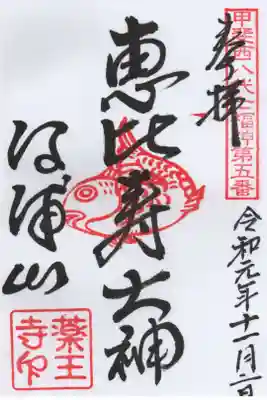 甲斐西八代七福神第五番
奉拝
恵比寿大神
河浦山
薬王寺印
令和元年十一月六日